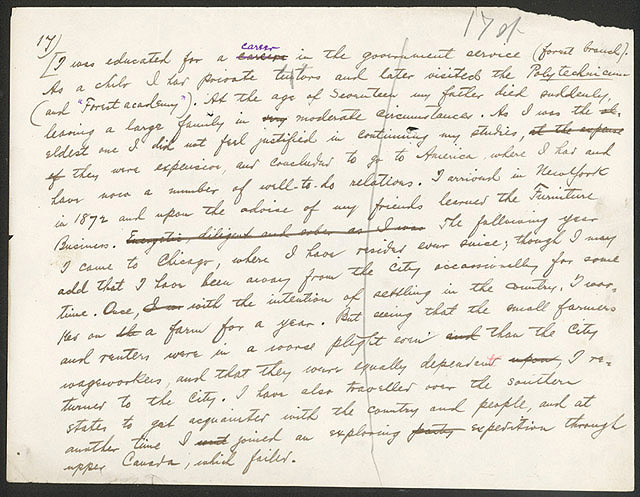 17 of
17)
career
[I was educated for a career in the government service (forest branch).
As a child I had private tutors and later visited the Polytechnicum
(and "Forest academy"). At the age of Seventeen my father died suddenly,
leaving a large family in very moderate circumstances. As I was the el-
eldest one I did not feel justified in continuing my studies, at the expense
of they were expensive, and concluded to go to America, where I had and
have now a number of well-to-do relations. I arrived in New York
in 1872 and upon the advise of my friends learned the Furniture
Business. Energetic, diligent and sober as I was The following year
I came to Chicago, where I have resided ever since; though I may
add that I have been away from the City occassionally for some
time. Once, I was with the intention of settling in the country, I wor-
ked on a farm for a year. But seeing that the small farmers
and renters were in a worse plight even and than the City
wageworkers, and that they were equally dependent upon, I re-
turned to the City. I have also travelled over the southern
states to get acquainted with the country and people, and at
another time I joined an exploring party expedition through
upper Canada, which failed.